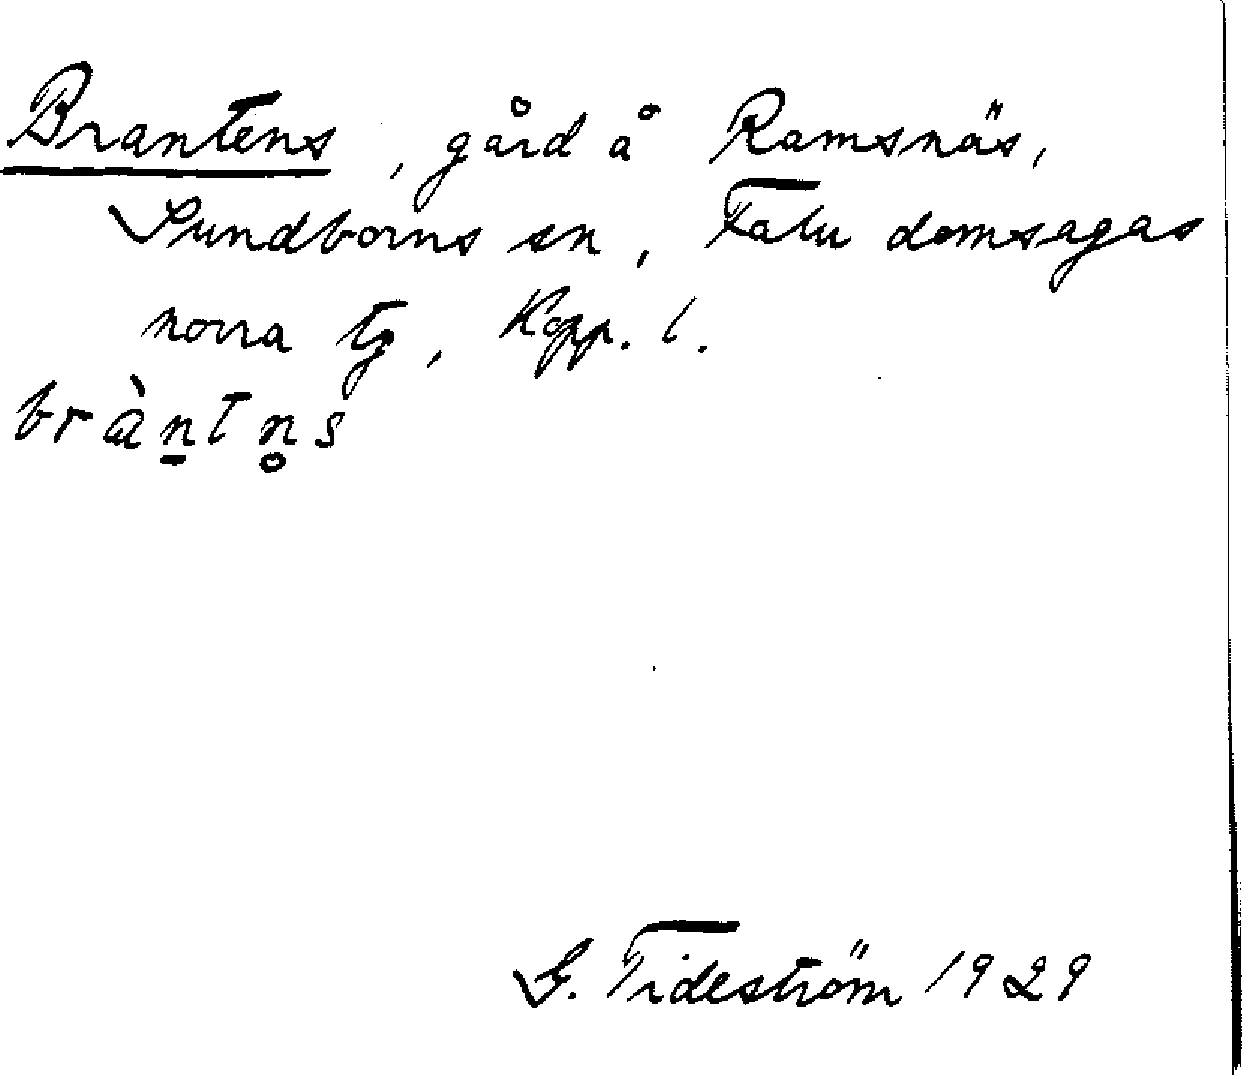 Brantens, gård å Ramsnäs,
Sundborns sn, Falu domsagas
norra tg, Kopp. l.
brànt̲n̥s
G. Tideström 1929